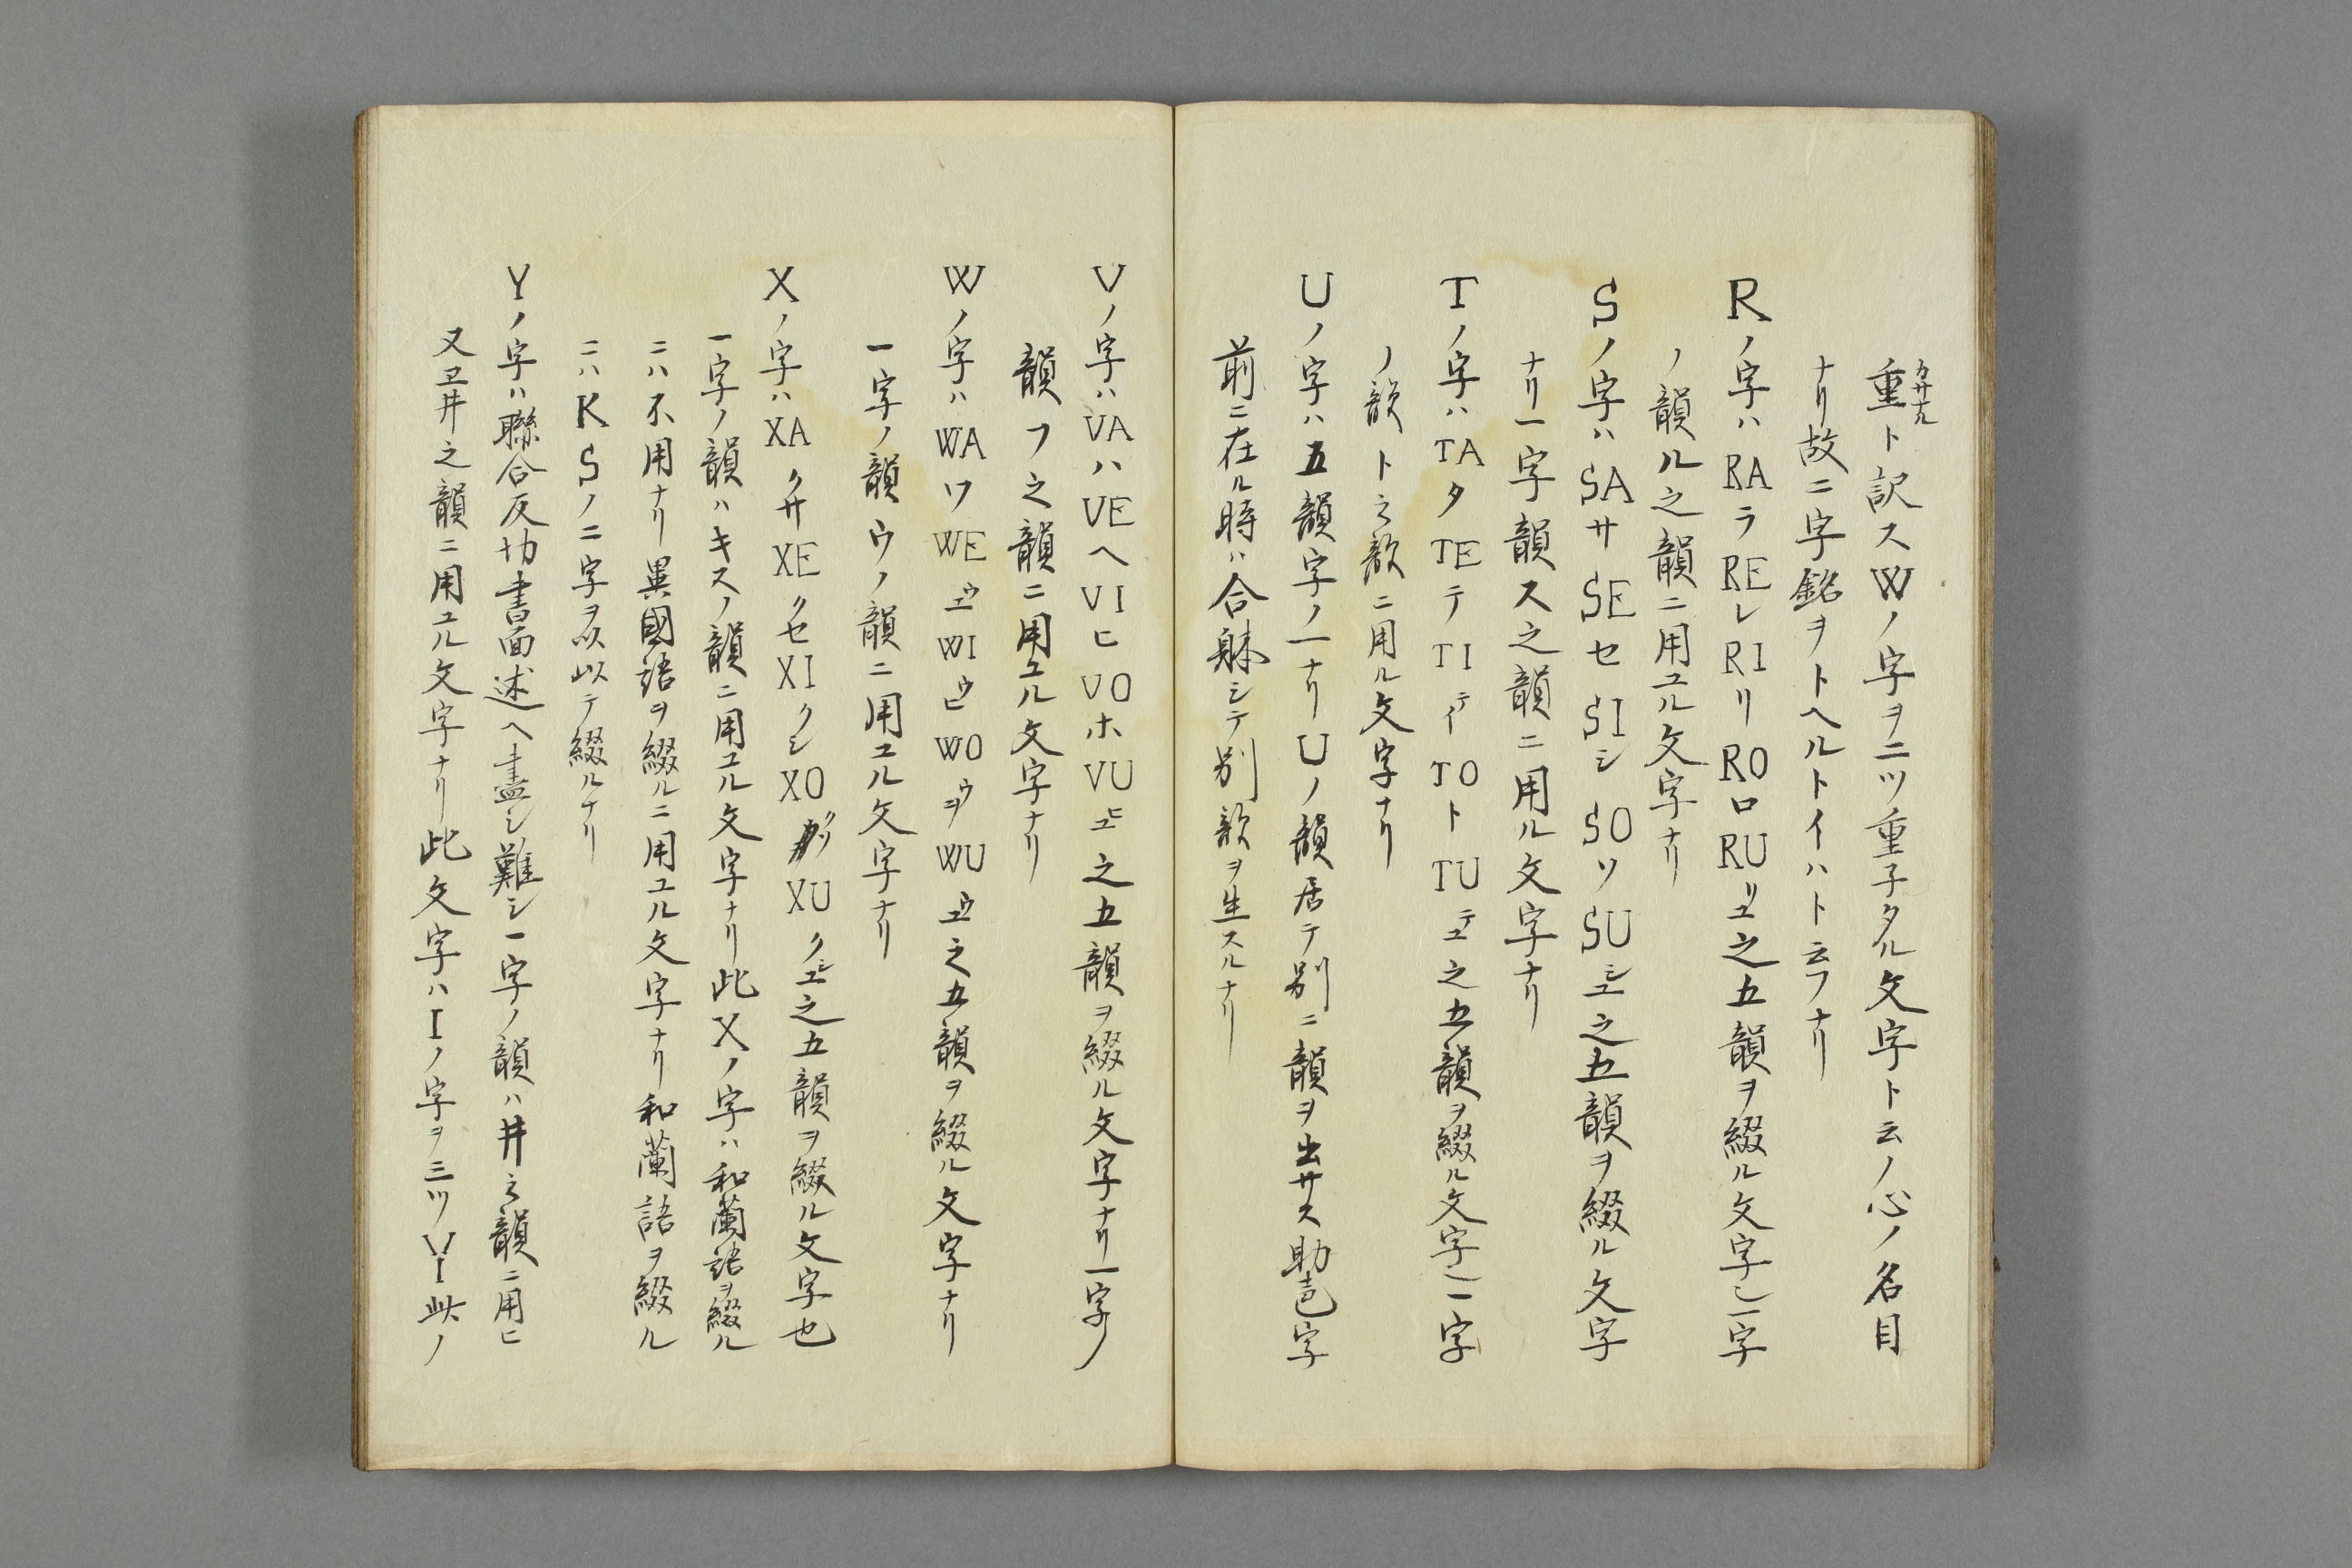 重ト訳スWノ字ヲ二ツ重子タル文字ト云ノ心ノ名目
カサナル
ナリ故ニ字銘ヲトヘルトイハト云フナリ
Rノ字ハRAラREレRIリROロRUリユ之五韻ヲ綴ル文字也一字
ノ韻ル之韻ニ用ユル文字ナリ
Sノ字ハSAサSEセSIシSOソSUシユ之五韻ヲ綴ル文字
ナリ一字韻ス之韻ニ用ル文字ナリ
Tノ字ハTAタTEテTIテイTOトTUテユ之五韻ヲ綴ル文字也一字
ノ韻ト之韻ニ用ル文字ナリ
Uノ字ハ五韻字ノ一ナリUノ韻居テ別ニ韻ヲ出サス助声字
前ニ在ル時ハ合躰シテ別韻ヲ生スルナリ
Vノ字ハVAハVEヘVIヒVOホVUヒユ之五韻ヲ綴ル文字ナリ一字ノ
韻フ之韻ニ用ユル文字ナリ
Wノ字ハWAワWEウエWIウヒWOウヲWUウユ之五韻ヲ綴ル文字ナリ
一字ノ韻ウノ韻ニ用ユル文字ナリ
Xノ字ハXAクサXEクセXIクシXOクソXUクシユ之五韻ヲ綴ル文字也
一字ノ韻ハキスノ韻ニ用ユル文字ナリ此Xノ字ハ和蘭語ヲ綴ル
ニハ不用ナリ異國語ヲ綴ルニ用ユル文字ナリ和蘭語ヲ綴ル
ニハKSノ二字ヲ以テ綴ルナリ
Yノ字ハ聯合反切書面述ヘ盡シ難シ一字ノ韻ハ井之韻ニ用ヒ
又ヱ井之韻ニ用ユル文字ナリ此文字ハIノ字ヲ三ツVI此ノ